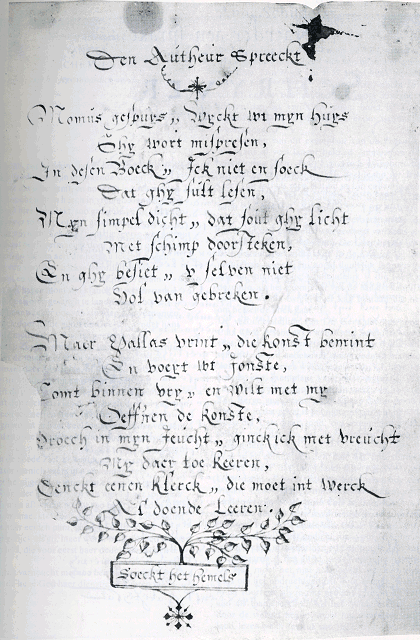 Den Autheur Spreeckt
Momus gespuys„ Wyckt wt myn Huys
Ghy wort mispresen,
In desen Boeck„ Ick niet en soeck
Dat ghy sult lesen,
Myn simpel dicht„ dat sout ghy licht
Met schimp doorsteken,
En ghy besiet„ v selven niet
Vol van gebreken.
Maer Pallas vrint„ die konst bemint
En voeyt wt Jonste,
Comt binnen vry„ en wilt met my
Oeffnen de konste,
Vroech in myn Jeucht„ ginck ick met vreucht
My daer toe keeren,
Denckt eenen Klerck„ die moet int Werck
Al doende Leeren.
Soeckt het hemels